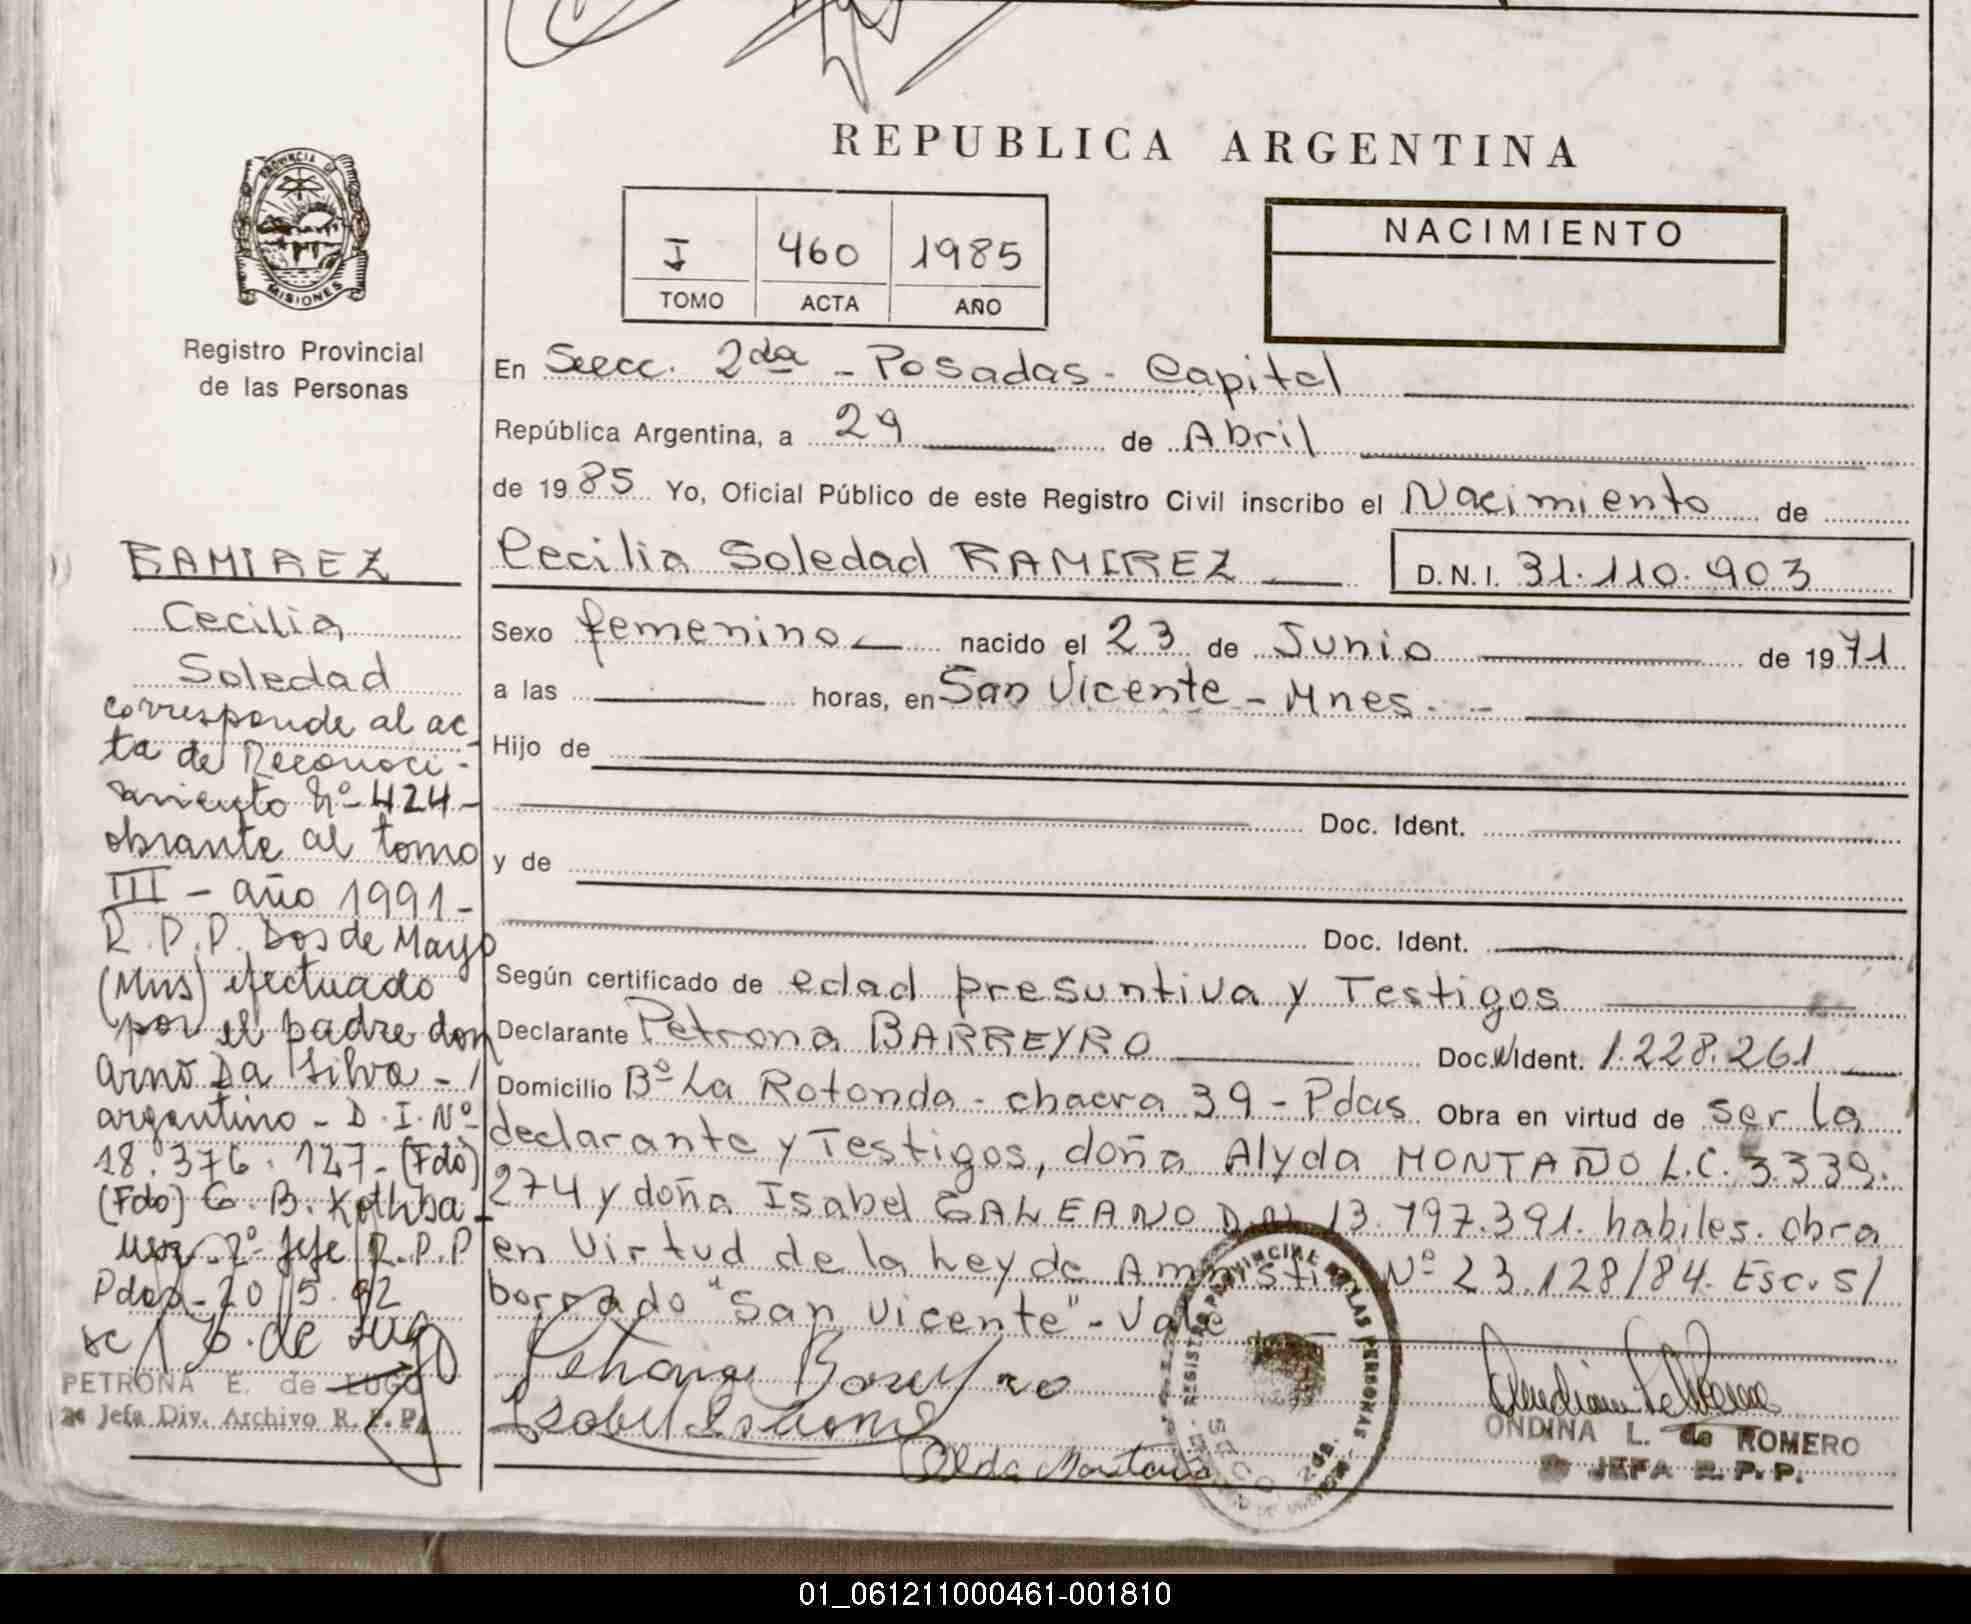 REPUBLICA ARGENTINA
PROVINCIA DE
MISIONES
Registro Provincial
de las Personas
I 460 1985
TOMO ACTA AÑO
NACIMIENTO
En Secc. 2da - Posadas - Capital
República Argentina, a 29 de Abril
de 1985 Yo, Oficial Público de este Registro Civil inscribo el Nacimiento de
Cecilia Soledad RAMIREZ D.N.I. 31.110.903
Sexo femenino nacido el 23 de Junio de 1971
a las horas, en San Vicente - Mnes. -
Hijo de
Doc. Ident.
y de
Doc. Ident.
Según certificado de edad presuntiva y Testigos
Declarante Petrona BARREYRO Doc. Ident. 1.228.261
Domicilio Bº La Rotonda - chacra 39 - Pdas. Obra en virtud de ser la
declarante y Testigos, doña Alyda MONTAÑO L.C. 3.339.
274 y doña Isabel GALEANO D.N.I. 13.797.391. habiles. obra
en Virtud de la Ley de Amnistia Nº 23.128/84. Esc. s/
borrado "San Vicente" - Vale
RAMIREZ
Cecilia
Soledad
corresponde al ac
ta de Reconoci-
miento Nº 424-
obrante al tomo
III - año 1991-
R.P.P. Dos de Mayo
(Mns) efectuado
por el padre don
Arno Da Silva -
argentino - D.I. Nº
18.376.127- (Fdo)
(Fdo) G. B.
2º Jefe R.P.P
Pdas - 20/5.92
PETRONA E. de LUGO
Jefa Div. Archivo R. P. P.
REGISTRO PROVINCIAL DE LAS PERSONAS
SECC 2da.
ONDINA L. de ROMERO
JEFA R. P. P.
01_061211000461-001810